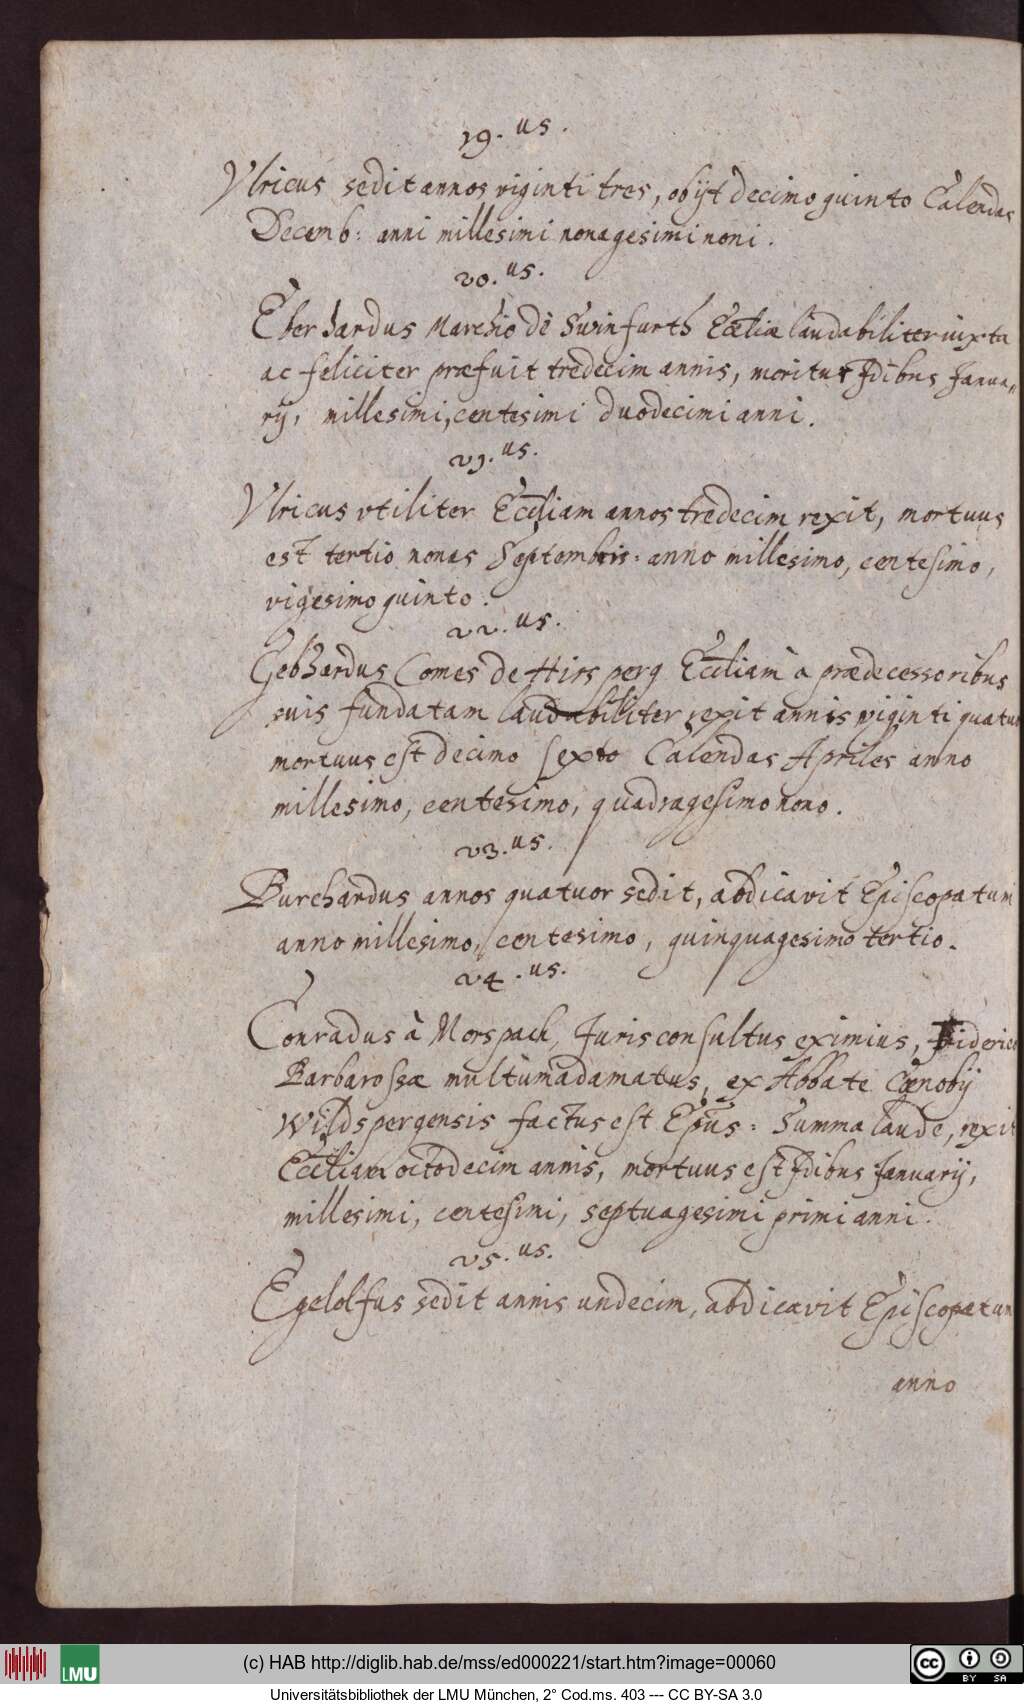 19.us.
Vlricus sedit annos viginti tres, obijt decimo quinto Calendas
Decemb: anni millesimi nonagesimi noni.
20.us.
Eberhardus Marchio de Swinfurth Ecctiæ laudabiliter iuxta
ac feliciter præfuit tredecim annis, moritur Idibus Janua„
rij, millesimi, centesimi duodecimi anni.
21.us.
Vlricus vtiliter Eccliam annos tredecim rexit, mortuus
est tertio nonas Septembris: anno millesimo, centesimo,
vigesimo quinto.
22.us.
Gebhardus Comes de Hirsperg Eccliam à prædecessoribus
suis fundatam laudabiliter rexit annis viginti quatuor
mortuus est decimo sexto Calendas Apriles anno
millesimo, centesimo, quadragesimo nono.
23.us.
Burchardus annos quatuor sedit, abdicavit Episcopatum
anno millesimo, centesimo, quinquagesimo tertio.
24.us.
Conradus à Morspach, Jurisconsultus eximius, Friderico
Barbarossæ multùm adamatus, ex Abbate Cœnobij
Wildspergensis factus est Epûs: Summa laude, rexit
Eccliam octodecim annis, mortuus est Idibus Januarij,
millesimi, centesimi, septuagesimi primi anni.
25.us.
Egelolfus sedit annis undecim, abdicavit Episcopatum
anno
LMU
(c) HAB http://diglib.hab.de/mss/ed000221/start.htm?image=00060
cc BY SA
Universitätsbibliothek der LMU München, 2° Cod.ms. 403 --- CC BY-SA 3.0